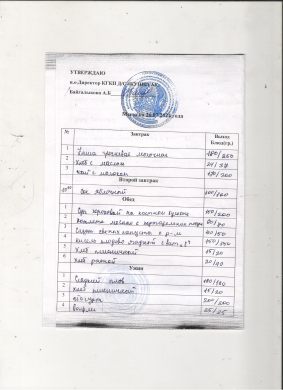 УТВЕРЖДАЮ
и.о.Директор КГКП
Байгалыкова А.Б
Меню на 26.05.2021 года
№ Завтрак Выход блюд(гр.)
1 Каша гречневая молочная 180/250
2 Хлеб с маслом
3 Чай с молоком 150/200
Второй завтрак
10:00 Сок яблочный 100/100
Обед
1 Суп гороховый на костном бульоне 150/200
2
3 Салат из свежей капусты с р-м 40/50
4 Кисель плодово ягодный с вит "С" 150/200
5 Хлеб пшеничный 15/20
6 Хлеб ржаной 30/40
Ужин
1 Сладкий плов 150/180
2 Хлеб пшеничный 15/20
3 йогурт 200/200
4 Вафли 25/25